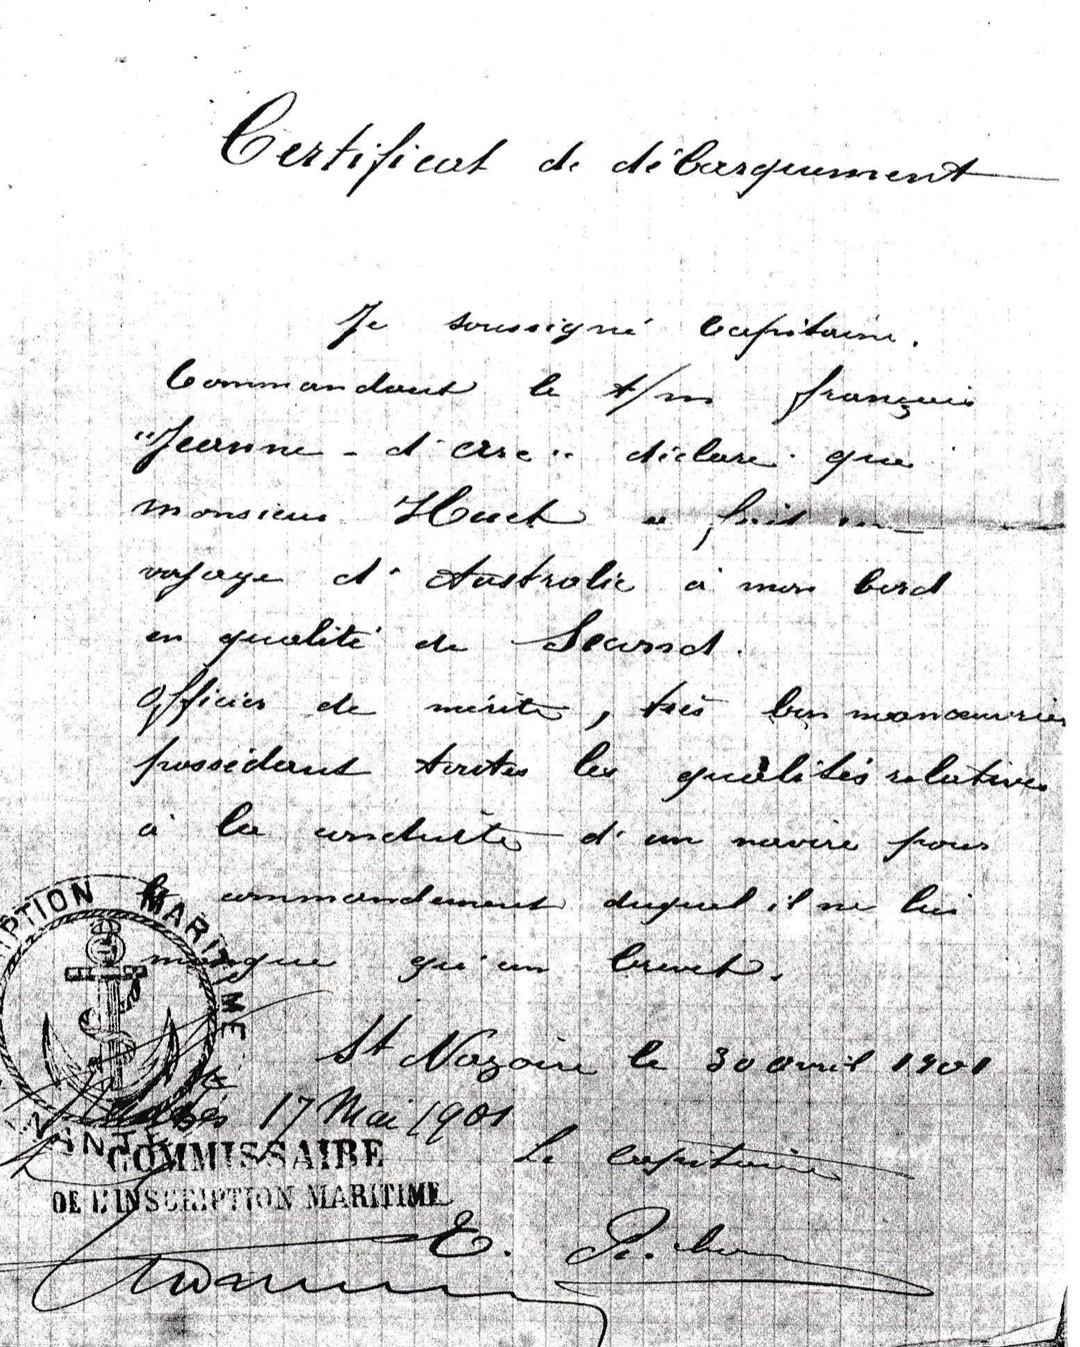 Certificat de débarquement
Je soussigné Capitaine.
Commandant le t/m français
"Jeanne-d'Arc" déclare que
monsieur Huet a fait un
voyage d'Australie à mon bord
en qualité de Second.
Officier de mérite, très bon manœuvrier
possédant toutes les qualités relatives
à la conduite d'un navire pour
le commandement duquel il ne lui
manque qu'un brevet.
St Nazaire le 30 avril 1901
17 Mai 1901
Le capitaine
COMMISSAIRE
DE L'INSCRIPTION MARITIME
E.
MARITIME
NANTES